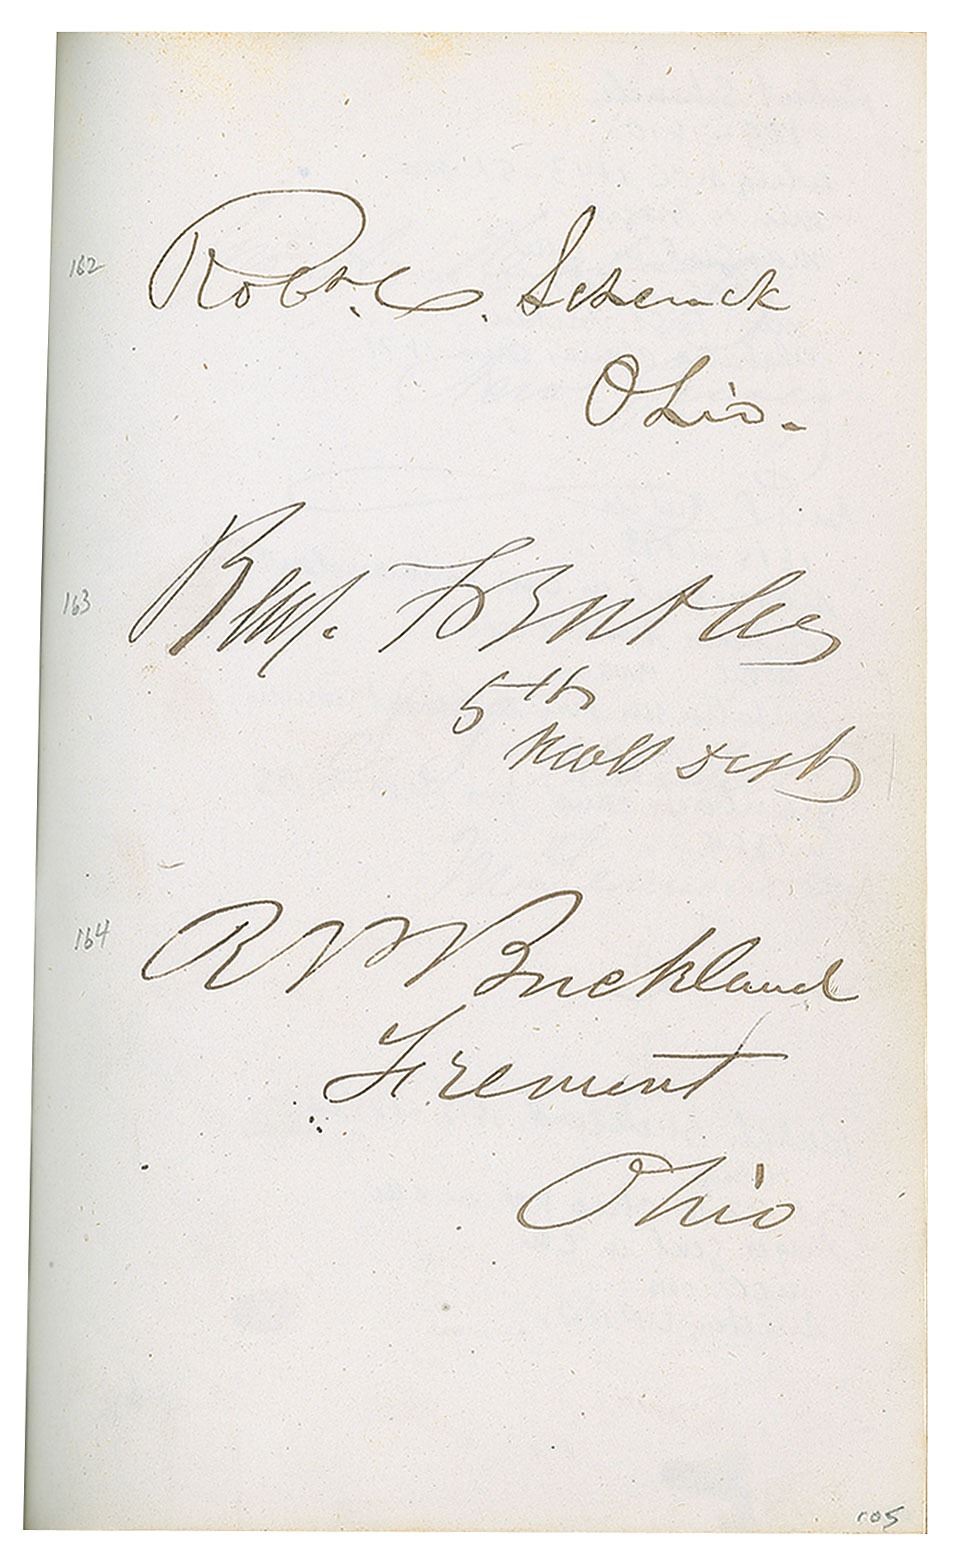 162 Robt. C. Schenck
Ohio.
163 Benj. F Butler
5th
Mass Dist
164 R P Buckland
Fremont
Ohio
105